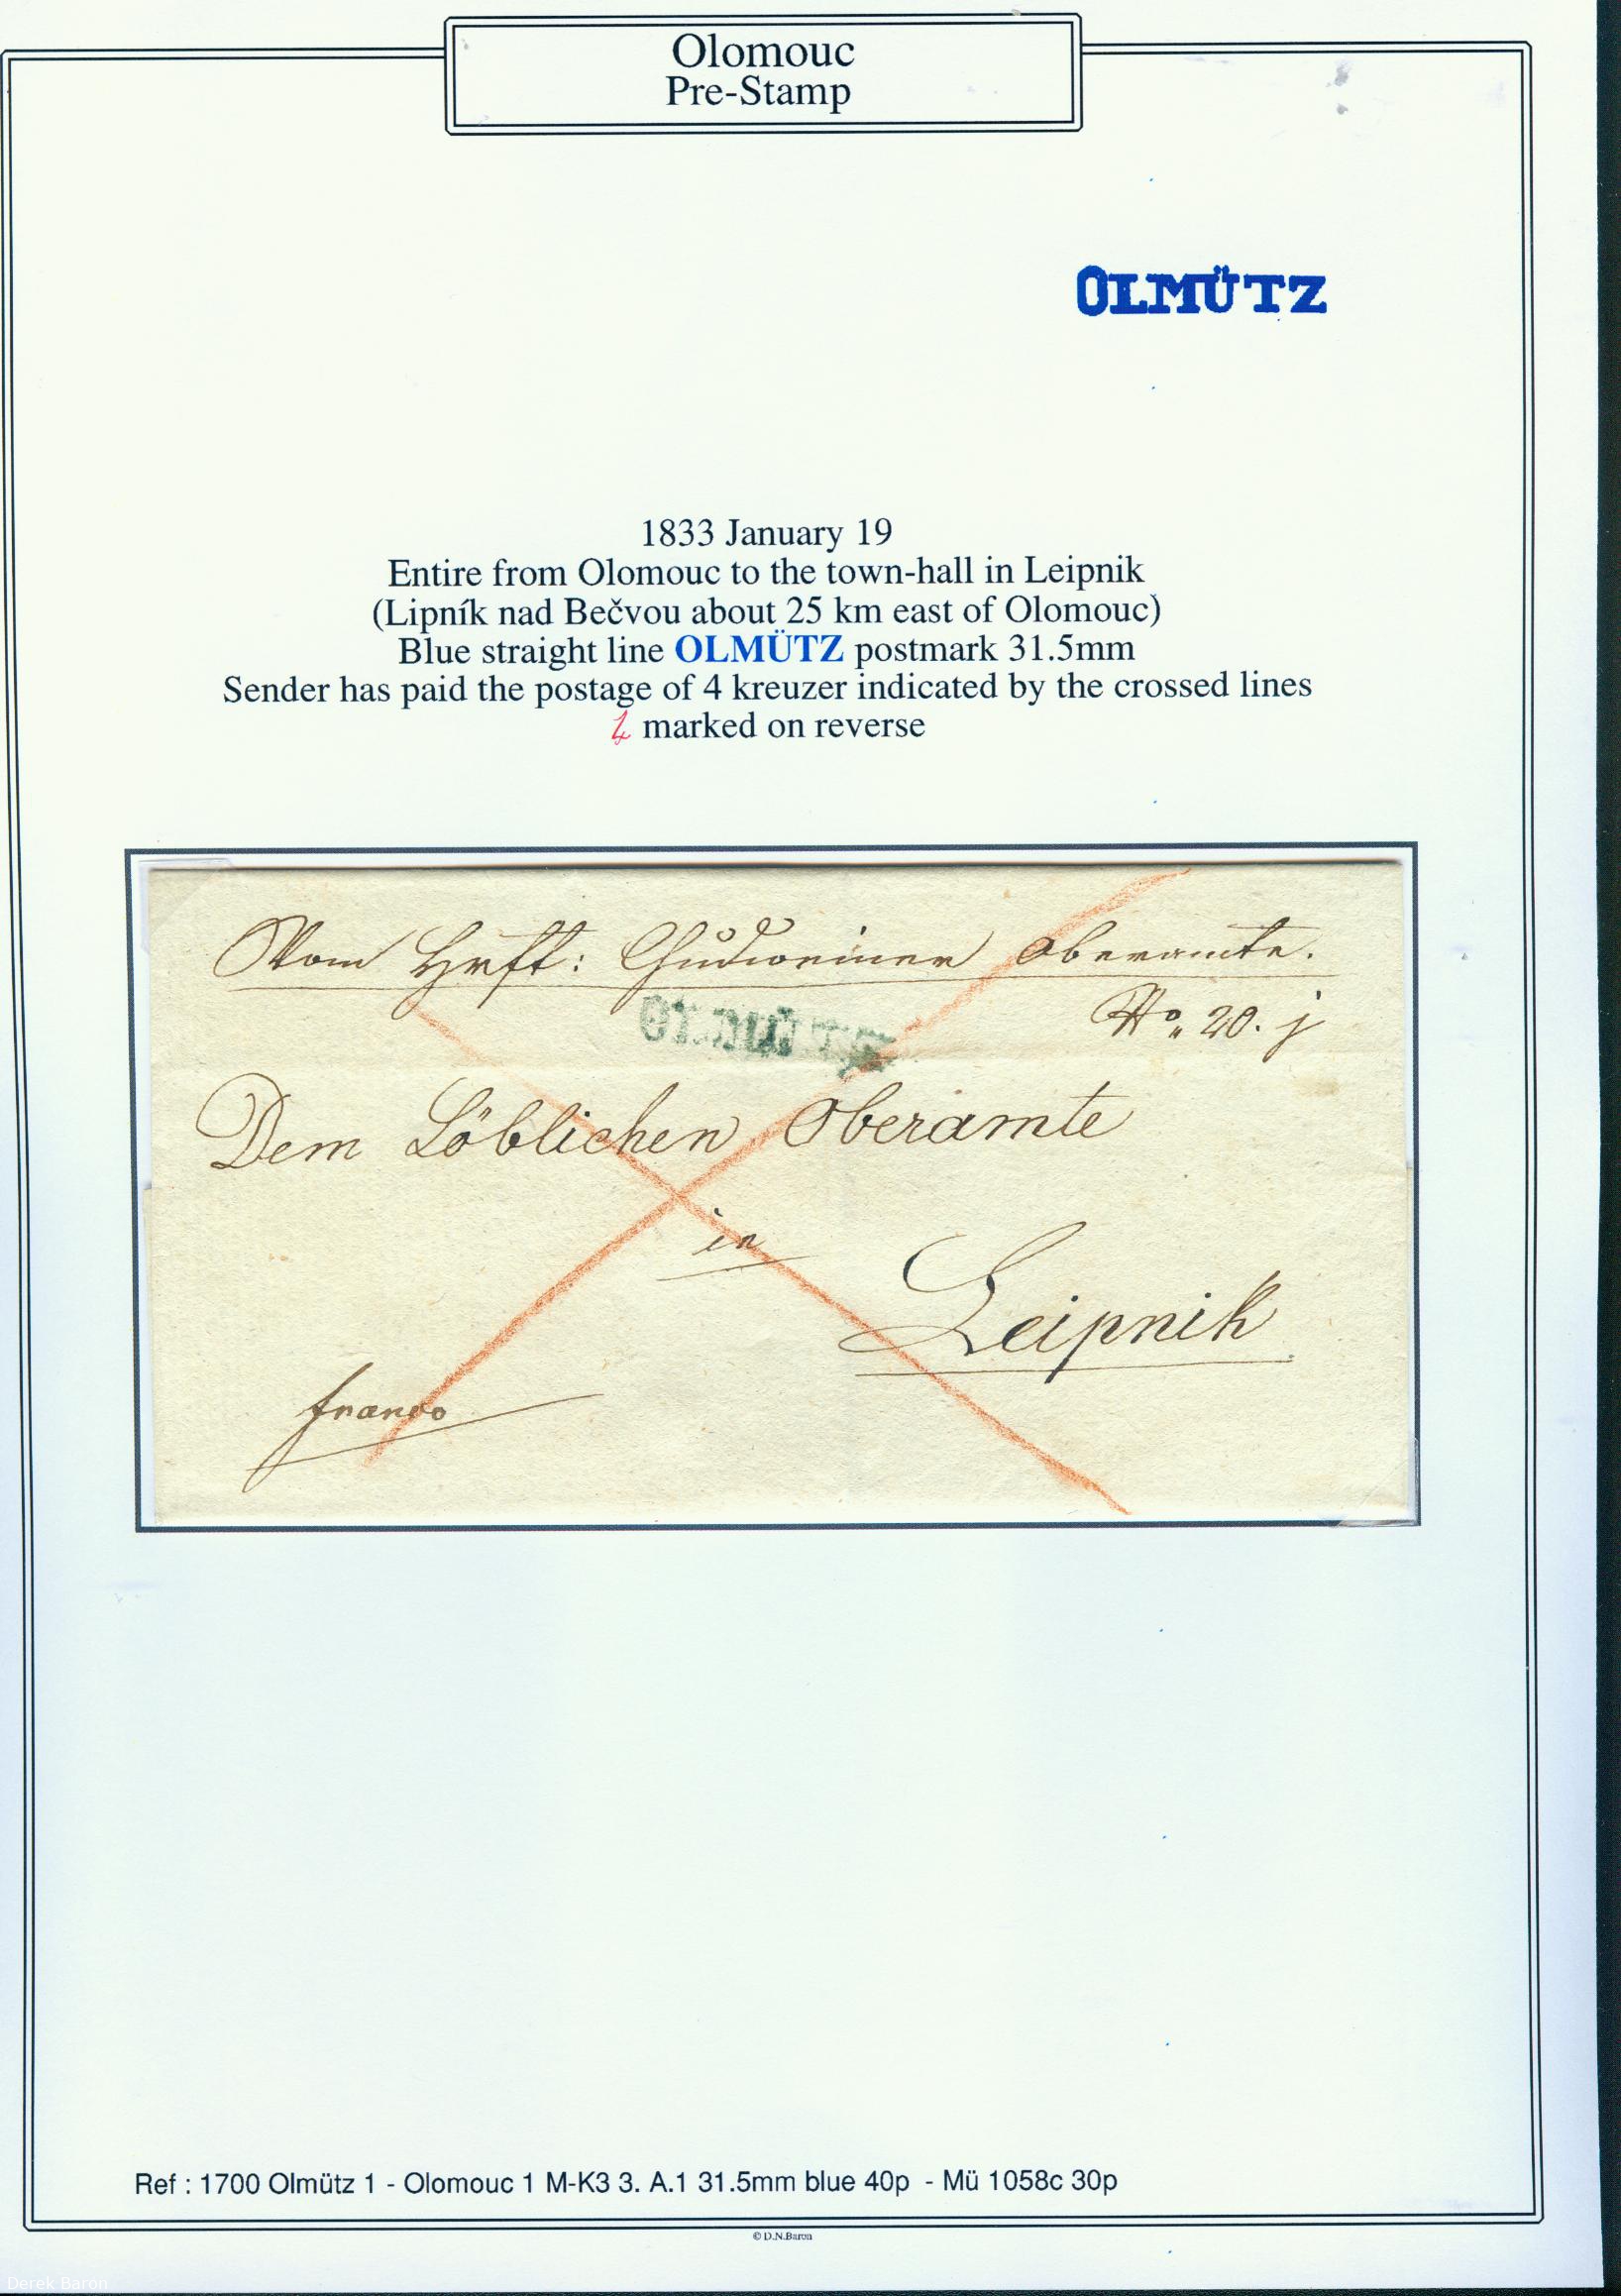 Olomouc
Pre-Stamp
OLMÜTZ
1833 January 19
Entire from Olomouc to the town-hall in Leipnik
(Lipník nad Bečvou about 25 km east of Olomouc)
Blue straight line OLMÜTZ postmark 31.5mm
Sender has paid the postage of 4 kreuzer indicated by the crossed lines
4 marked on reverse
Vom Hrft: Oberamte.
OLMÜTZ
No. 20. j
Dem Löblichen Oberamte
in
Leipnik
franco
Ref : 1700 Olmütz 1 - Olomouc 1 M-K3 3. A.1 31.5mm blue 40p - Mü 1058c 30p
© D.N.Baron
Derek Baron